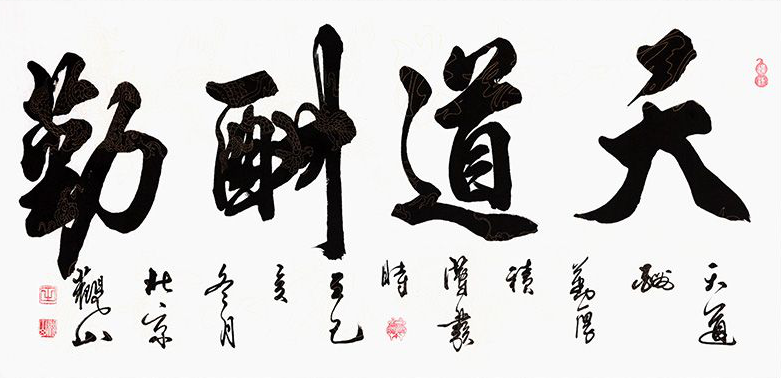 天道酬勤
天道
酬
勤厚
積
薄發
時
在己
亥
冬月
北京
觀山